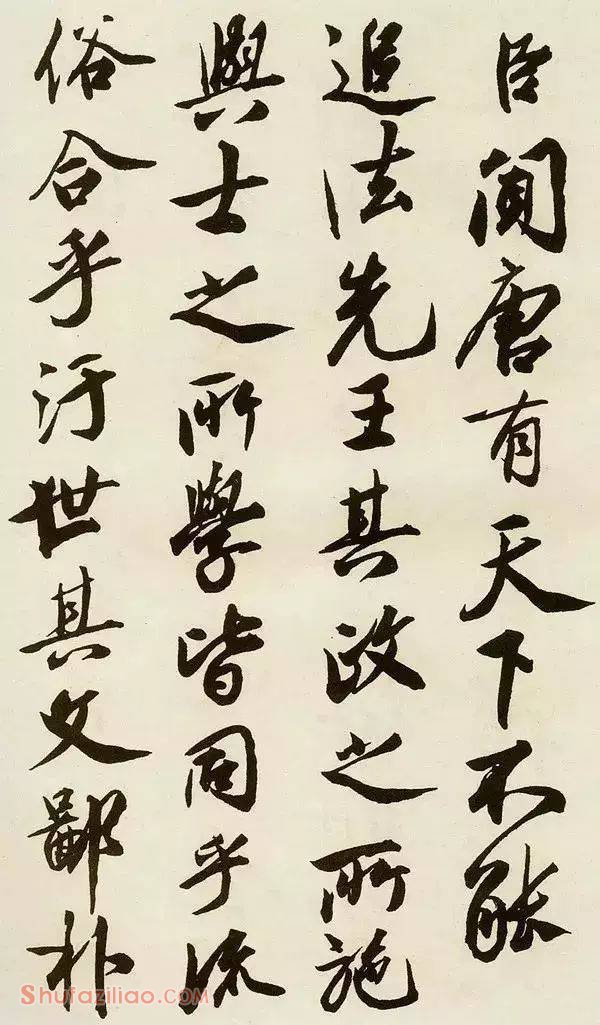 臣聞唐有天下不能
追法先王其政之所施
與士之所學皆同乎流
俗合乎汙世其文鄙朴
Shufaziliao.com